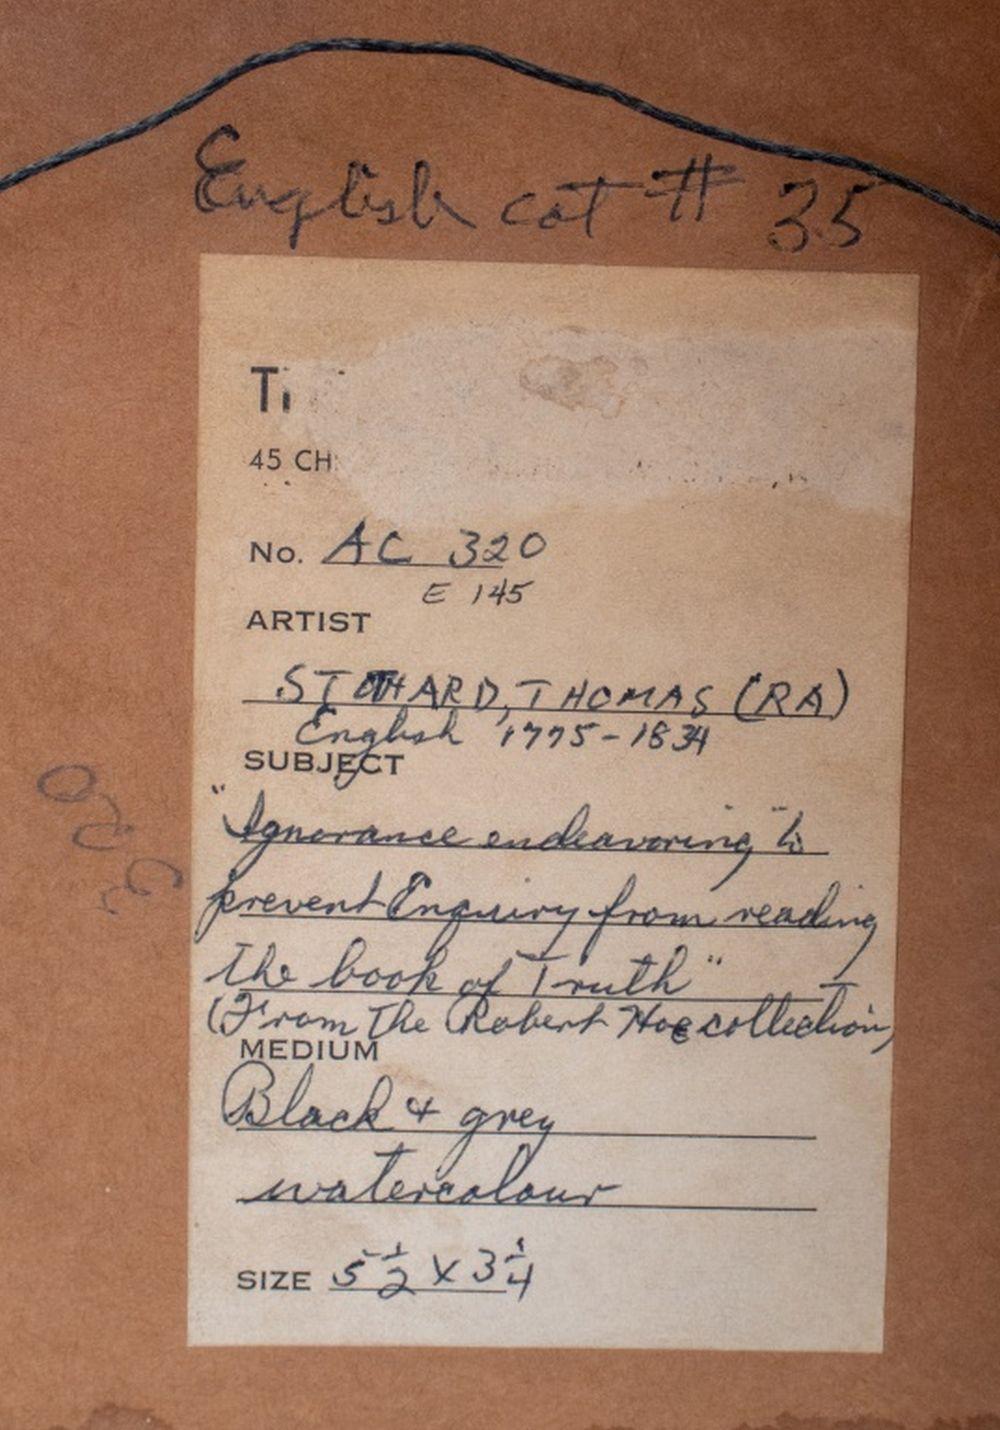 English cat # 35
45 CH
No. AC 320
E 145
ARTIST
STOTHARD, THOMAS (RA)
English 1775-1834
SUBJECT
"Ignorance endeavoring" to
prevent Enquiry from reading
the book of Truth"
(From The Robert Hoe collection)
MEDIUM
Black & grey
watercolour
SIZE 5 1/2 X 3 1/4